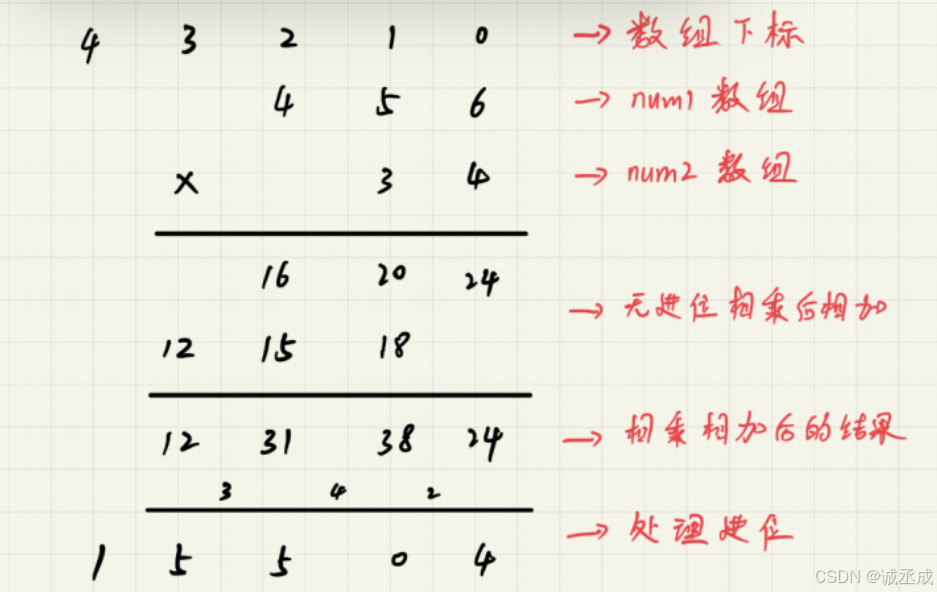 4 3 2 1 0 → 数组下标
4 5 6 → num1 数组
× 3 4 → num2 数组
16 20 24
→ 无进位相乘后相加
12 15 18
12 31 38 24 → 相乘相加后的结果
3 4 2
1 5 5 0 4 → 处理进位
CSDN @诚丞成